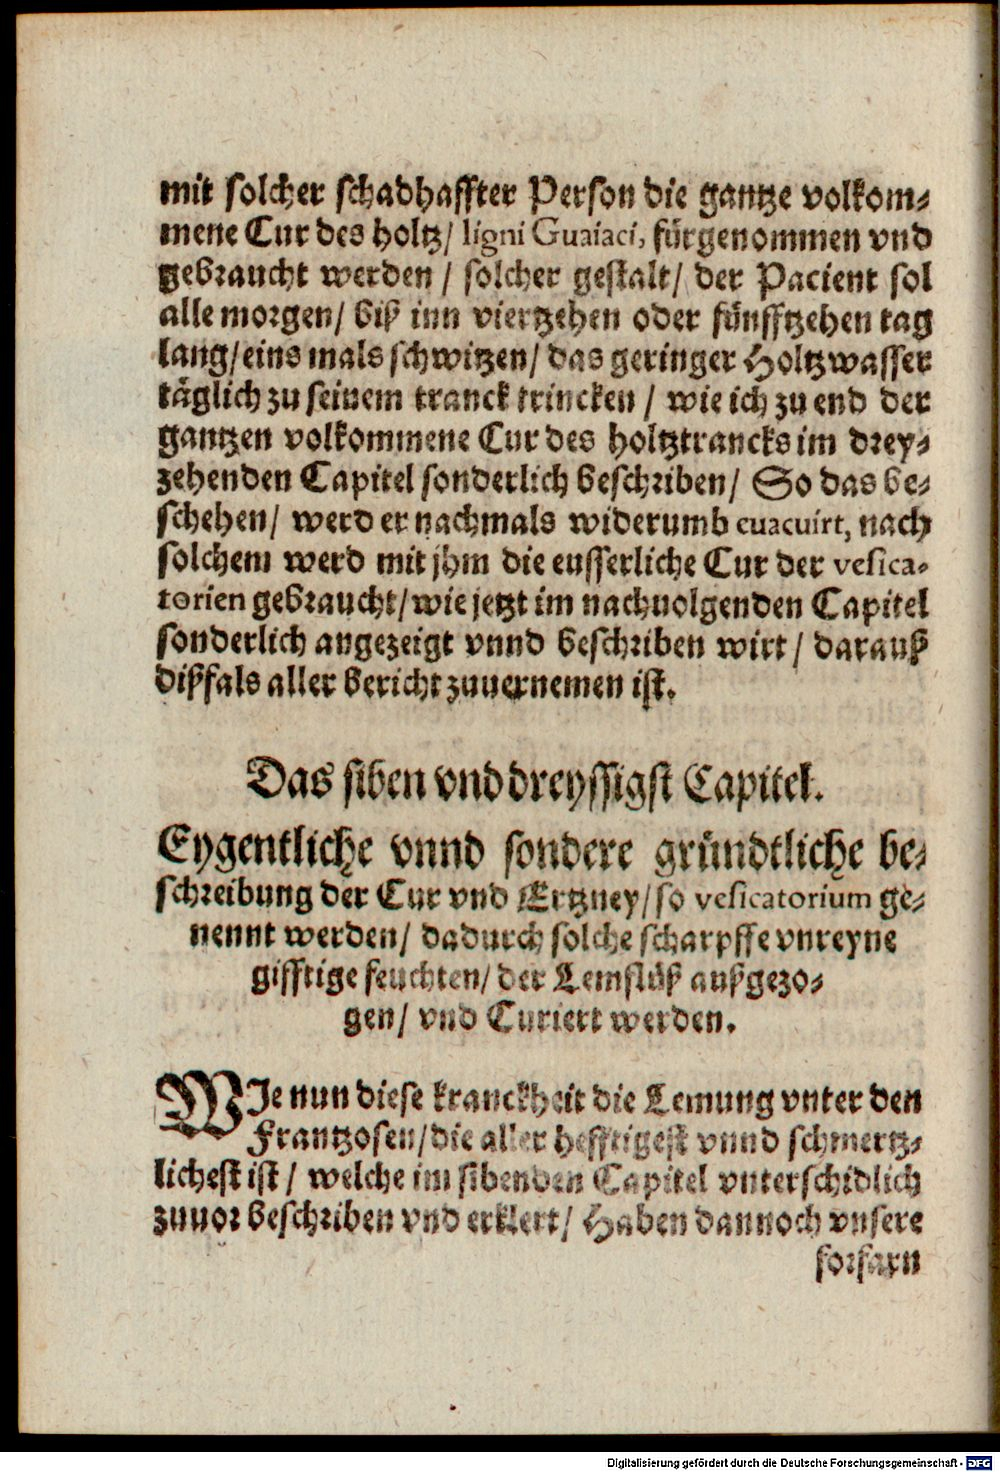 mit solcher schadhaffter Person die gantze volkom-
mene Cur des holtz/ ligni Guaiaci, fürgenommen vnd
gebraucht werden / solcher gestalt/ der Pacient sol
alle morgen/ biß inn viertzehen oder fünfftzehen tag
lang/ eins mals schwitzen/ das geringer Holtzwasser
täglich zu seinem tranck trincken / wie ich zu end der
gantzen volkommene Cur des holtztrancks im drey-
zehenden Capitel sonderlich beschriben/ So das be-
schehen/ werd er nachmals widerumb euacuirt, nach
solchem werd mit jhm die eusserliche Cur der vesica-
torien gebraucht/ wie jetzt im nachuolgenden Capitel
sonderlich angezeigt vnnd beschriben wirt / darauß
dißfals aller bericht zuuernemen ist.
Das siben vnd dreyssigst Capitel.
Eygentliche vnnd sondere gründtliche be-
schreibung der Cur vnd Ertzney/ so vesicatorium ge-
nennt werden/ dadurch solche scharpffe vnreyne
gifftige feuchten/ der Lemflüß außgezo-
gen/ vnd Curiert werden.
WIe nun diese kranckheit die Lemung vnter den
Frantzosen/ die aller hefftigest vnnd schmertz-
lichest ist / welche im sibenden Capitel vnterschidlich
zuuor beschriben vnd erklert/ Haben dannoch vnsere
forfarn
Digitalisierung gefördert durch die Deutsche Forschungsgemeinschaft - DFG